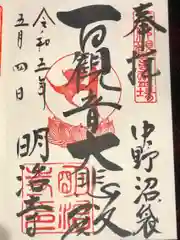 奉拝
中野沼袋
百観音大悲殿
令和五年
五月四日
明治寺